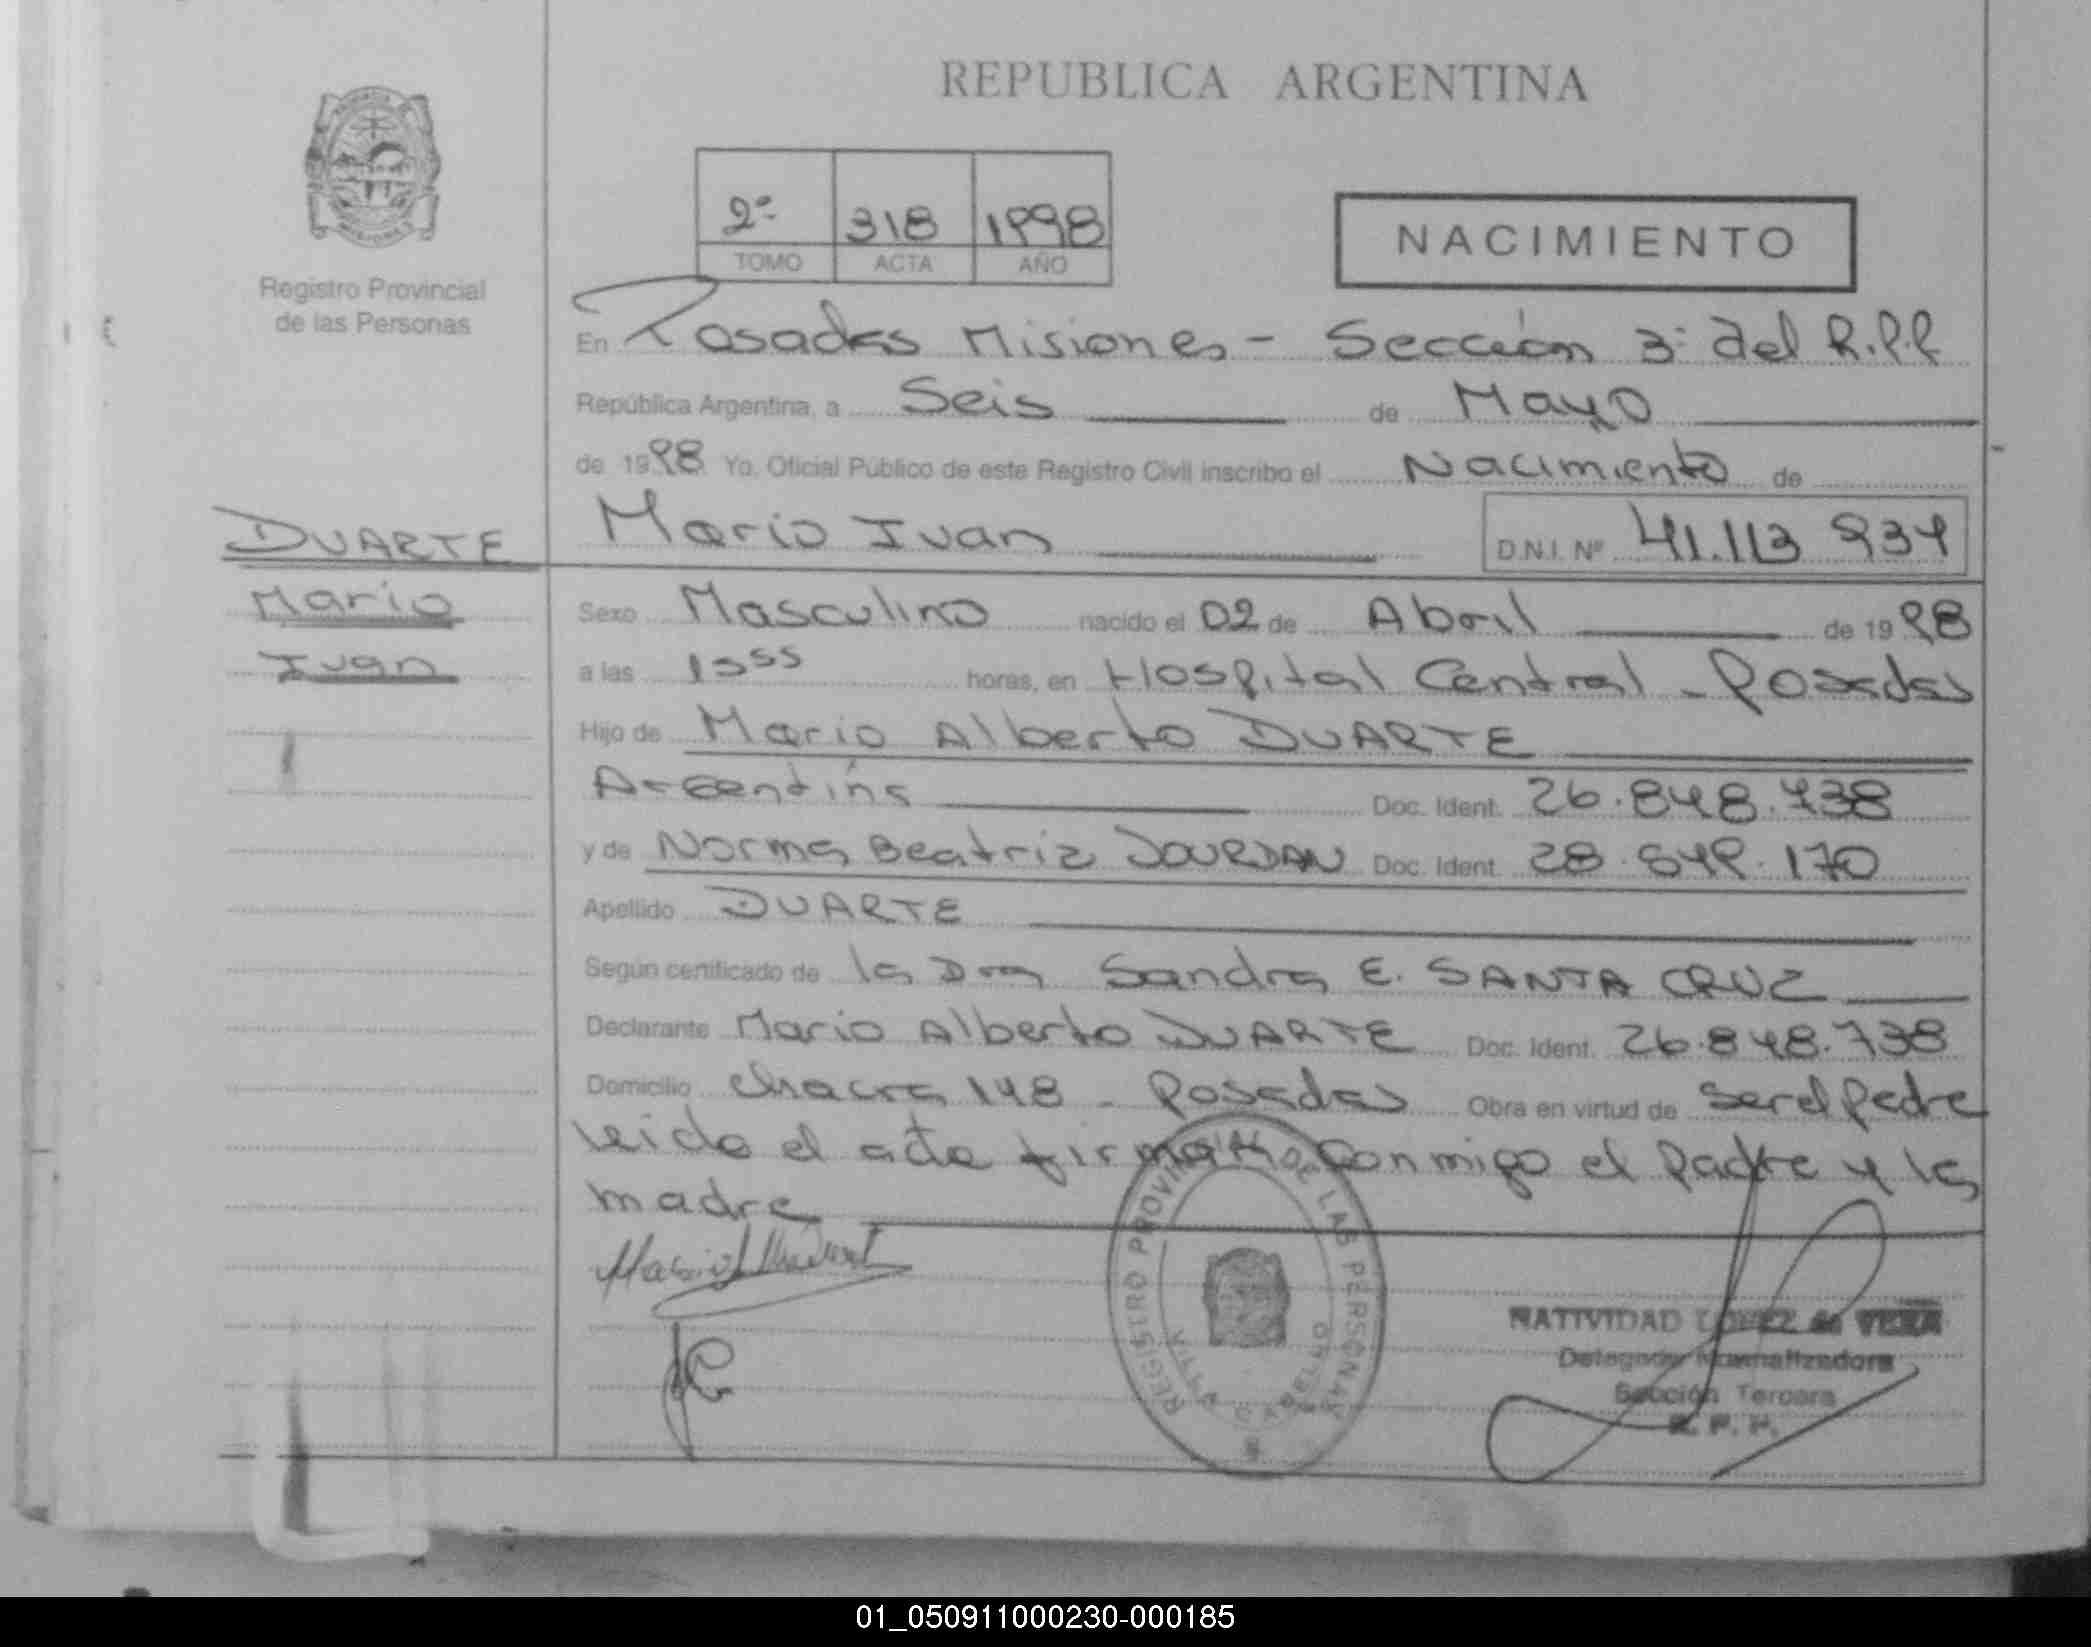 REPUBLICA ARGENTINA
2º 318 1998
TOMO ACTA AÑO
NACIMIENTO
Registro Provincial
de las Personas
En Posadas Misiones - Sección 3ª del R.P.P.
República Argentina, a Seis de Mayo
de 1998 Yo, Oficial Público de este Registro Civil inscribo el Nacimiento de
DUARTE
Mario
Ivan
Mario Ivan D.N.I. Nº 41.113 934
Sexo Masculino nacido el 02 de Abril de 1998
a las horas, en Hospital Central - Posadas
Hijo de Mario Alberto DUARTE
Argentina Doc. Ident. 26.848.738
y de Norma Beatriz JOURDAN Doc. Ident. 28.849.170
Apellido DUARTE
Según certificado de la Dra Sandra E. SANTA CRUZ
Declarante Mario Alberto DUARTE Doc. Ident. 26.848.738
Domicilio Chacra 148 - Posadas Obra en virtud de ser el Padre
leida el acta firman conmigo el Padre y la
madre
REGISTRO PROVINCIAL DE LAS PERSONAS
NATIVIDAD LOPEZ de VERA
Delegada Normalizadora
Sección Tercera
R. P. P.
01_050911000230-000185